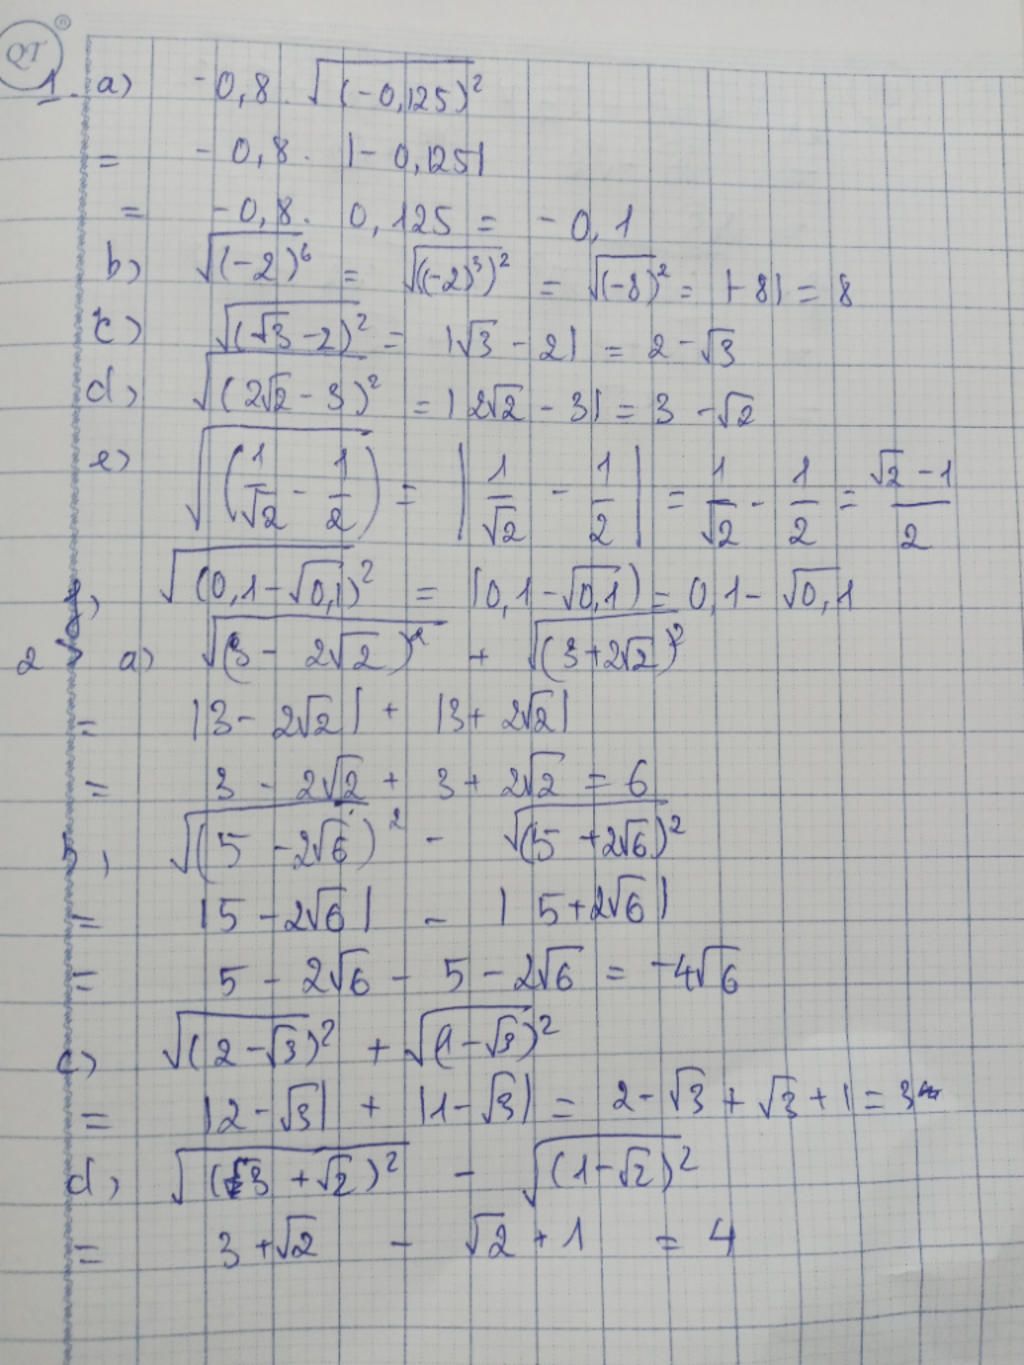 QT ®
1. a) -0,8 . √(-0,125)²
= -0,8 . |-0,125|
= -0,8 . 0,125 = -0,1
b) √(-2)⁶ = √((-2)³)² = √(-8)² = |-8| = 8
c) √(√3 - 2)² = |√3 - 2| = 2 - √3
d) √(2√2 - 3)² = |2√2 - 3| = 3 - √2
e) √(1/√2 - 1/2) = |1/√2 - 1/2| = 1/√2 - 1/2 = (√2 - 1)/2
√(0,1 - √0,1)² = |0,1 - √0,1) = 0,1 - √0,1
2 a) √(3 - 2√2)² + √(3 + 2√2)²
= |3 - 2√2| + |3 + 2√2|
= 3 - 2√2 + 3 + 2√2 = 6
b, √(5 - 2√6)² - √(5 + 2√6)²
= |5 - 2√6| - |5 + 2√6|
= 5 - 2√6 - 5 - 2√6 = -4√6
c) √(2 - √3)² + √(1 - √3)²
= |2 - √3| + |1 - √3| = 2 - √3 + √3 + 1 = 3
d, √(3 + √2)² - √(1 - √2)²
= 3 + √2 - √2 + 1 = 4